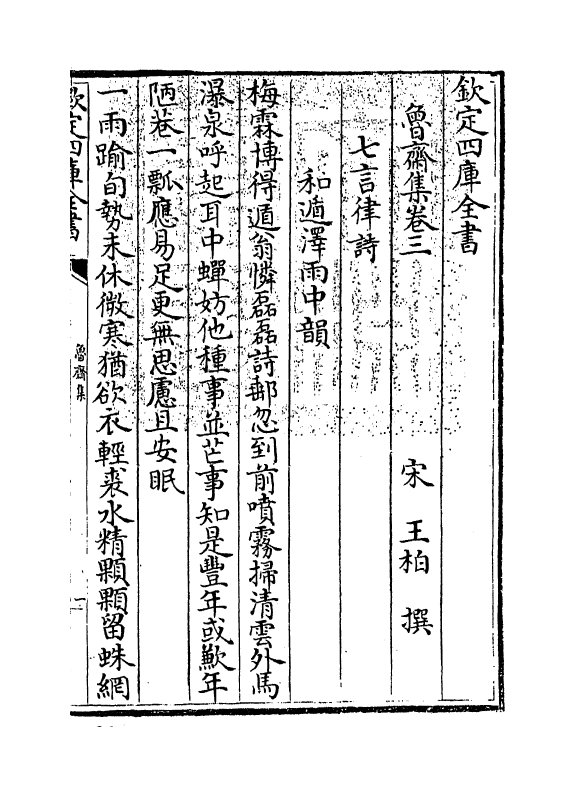 欽定四庫全書
魯齋集卷三
宋 王柏 撰
七言律詩
和遁澤雨中韻
梅霖博得遁翁憐磊磊詩郵忽到前噴霧掃清雲外馬
瀑泉呼起耳中蟬妨他種事並芒事知是豐年或歉年
陋巷一瓢應易足更無思慮且安眠
一雨踰旬勢未休微寒猶欲衣輕裘水精顆顆留蛛網
欽定四庫全書
魯齋集
一